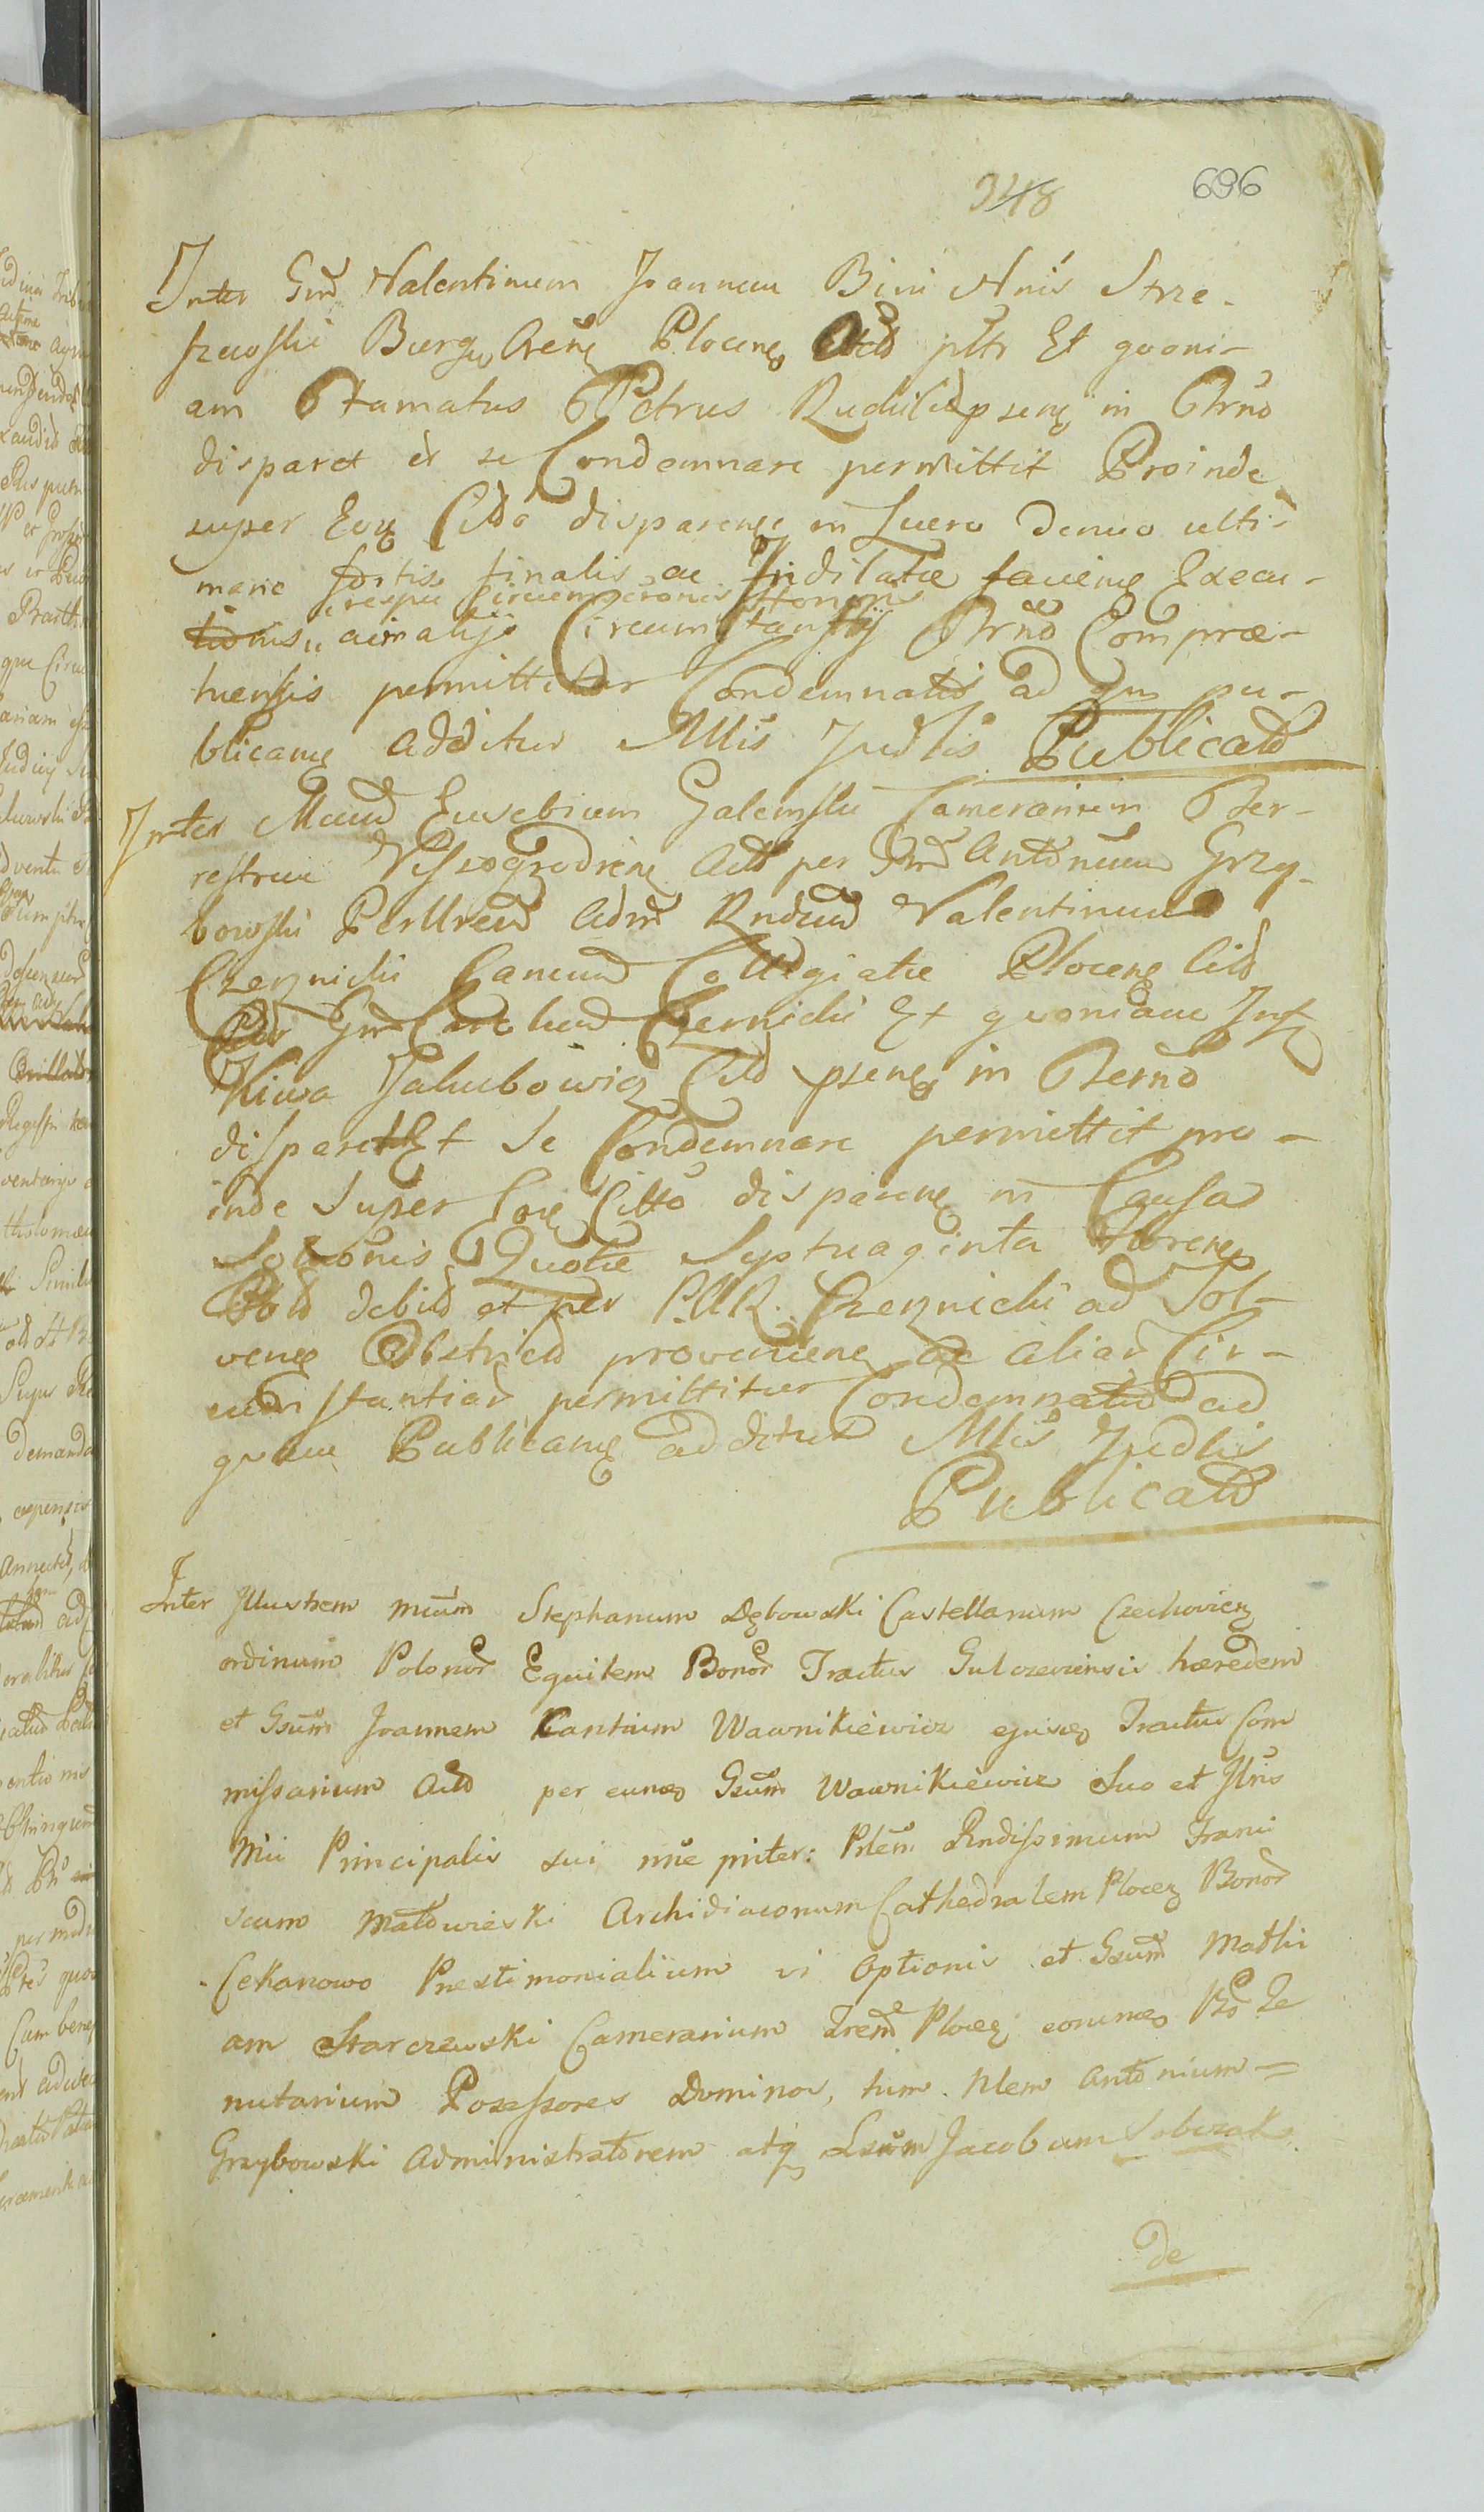 348 696
Inter Gnd Valentinum Joannem Bini Nnis Strze-
szewski Burg Crens Plocens Actd pltr Et quoni-
am Ftamatus Petrus Rucki Citd psens in Trno
disparet et se Condemnare permittit Proinde
super Eoq Citdo disparenq in Lucro denuo ulti-
marie finalis ac Indilatae faciens Execu-
tionis aliisq Circumstantijs Trno Compræ-
hensis permittitur Condemnatis ad qm pu-
blicanq additur Mlis Judlis Publicatd
Inter Mcud Eusebium Galemski Camerarium Ter-
restrem Vissogrodiens Actd per Gnd Antonium Grzy-
bowski Perllrem Admd Rndum Valentinum
Czeznicki Canoncd Collegiatæ Plocens Citd
per Gnd Carolum Czernicki Et quoniam Inf
Kiwa Jakubowicz Citd psens in Termno
disparet Et Se Condemnare permittit pro-
inde Super Eoq Citto disparenq in Causa
Solutionis Quotæ Septuaginta Florens
Pold debitd et per P.A.R. Czeznicki ad Sol-
vend Obstrictd proveniens ac aliard Cir-
cumstantiard permittitur Condemnatd ad
quam Publicanq additur Mlis Judlis
Publicatd
Inter Illustrem Mcum Stephanum Dębowski Castellanum Czechoviens
ordinum Polonor Equitem Bonor Tractus Gulczeviensis hæredem
et Gsum Joannem Cantium Wawnikiewicz ejusq Tractus Com
missarium Actd per eunq Gsum Wawnikiewicz Suo et Illris
Mci Principalis sui nne pnter: Prlem Rndissimum Franci
scum Małowieski Archidiaconum Cathedralem Plocens Bonor
Cekanowo Præstimonialium vi Optionis et Gsum Mathi
am Starczewski Camerarium Trem Plocens eorunq
nutarium Possessores Dominos, tum Nlem Antonium =
Grzybowski Administratorem atq Lsum Jacobum Sobczak
de